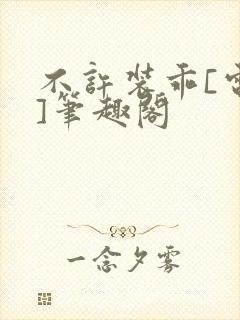 不許裝乖[電
]筆趣閣
一念夕霧